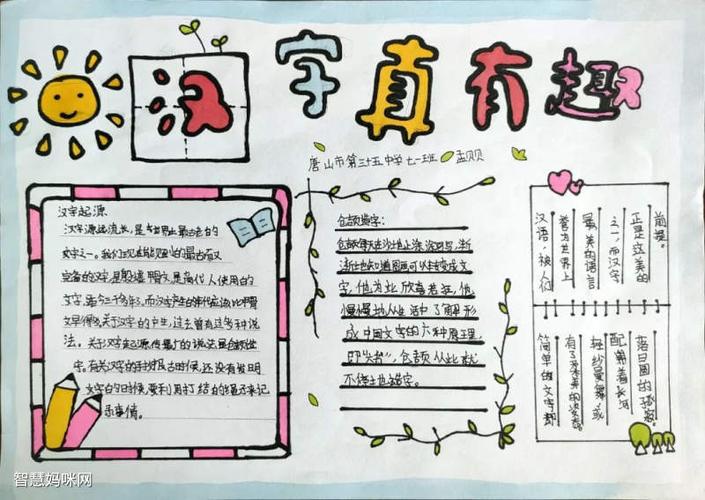 汉字真有趣
唐山市第三十五中学七一班 孟贝贝
汉字起源
汉字源起流长,是世界上最古老的
文字之一。我们现在能见到的最古而又
完备的汉字,是殷墟甲骨文,是商代人使用的
文字,距今三千多年,而汉字产生的年代应该比甲骨
文早得多。关于汉字的产生,过去曾有过多种说
法。关于汉字起源,传最广的说法是仓颉造
字。有关汉字的
文字的时候,要利用打结的绳子来记
录事情。
仓颉造字:
仓颉每天在沙地上涂涂写写,渐
渐他知道图画可以转变成文
字,他为此欣喜若狂,他
慢慢地从生活中了解形
成中国文字的六种原理,
即"六书",仓颉从此就
不停地造字。
前提。
正是立美的
之一,而汉字
最美的语言
誉为世界上
汉语,被人们
落日圆的球寂
配着长河
轻纱曼舞,或
有了柔美的姿态
简单的文字都
智慧妈咪网